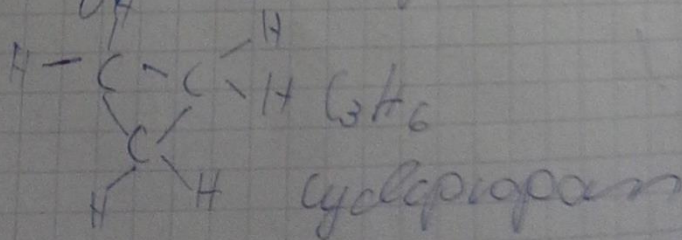 H
H
H - C - C
H C₃H₆
C
H H
cyclopropan